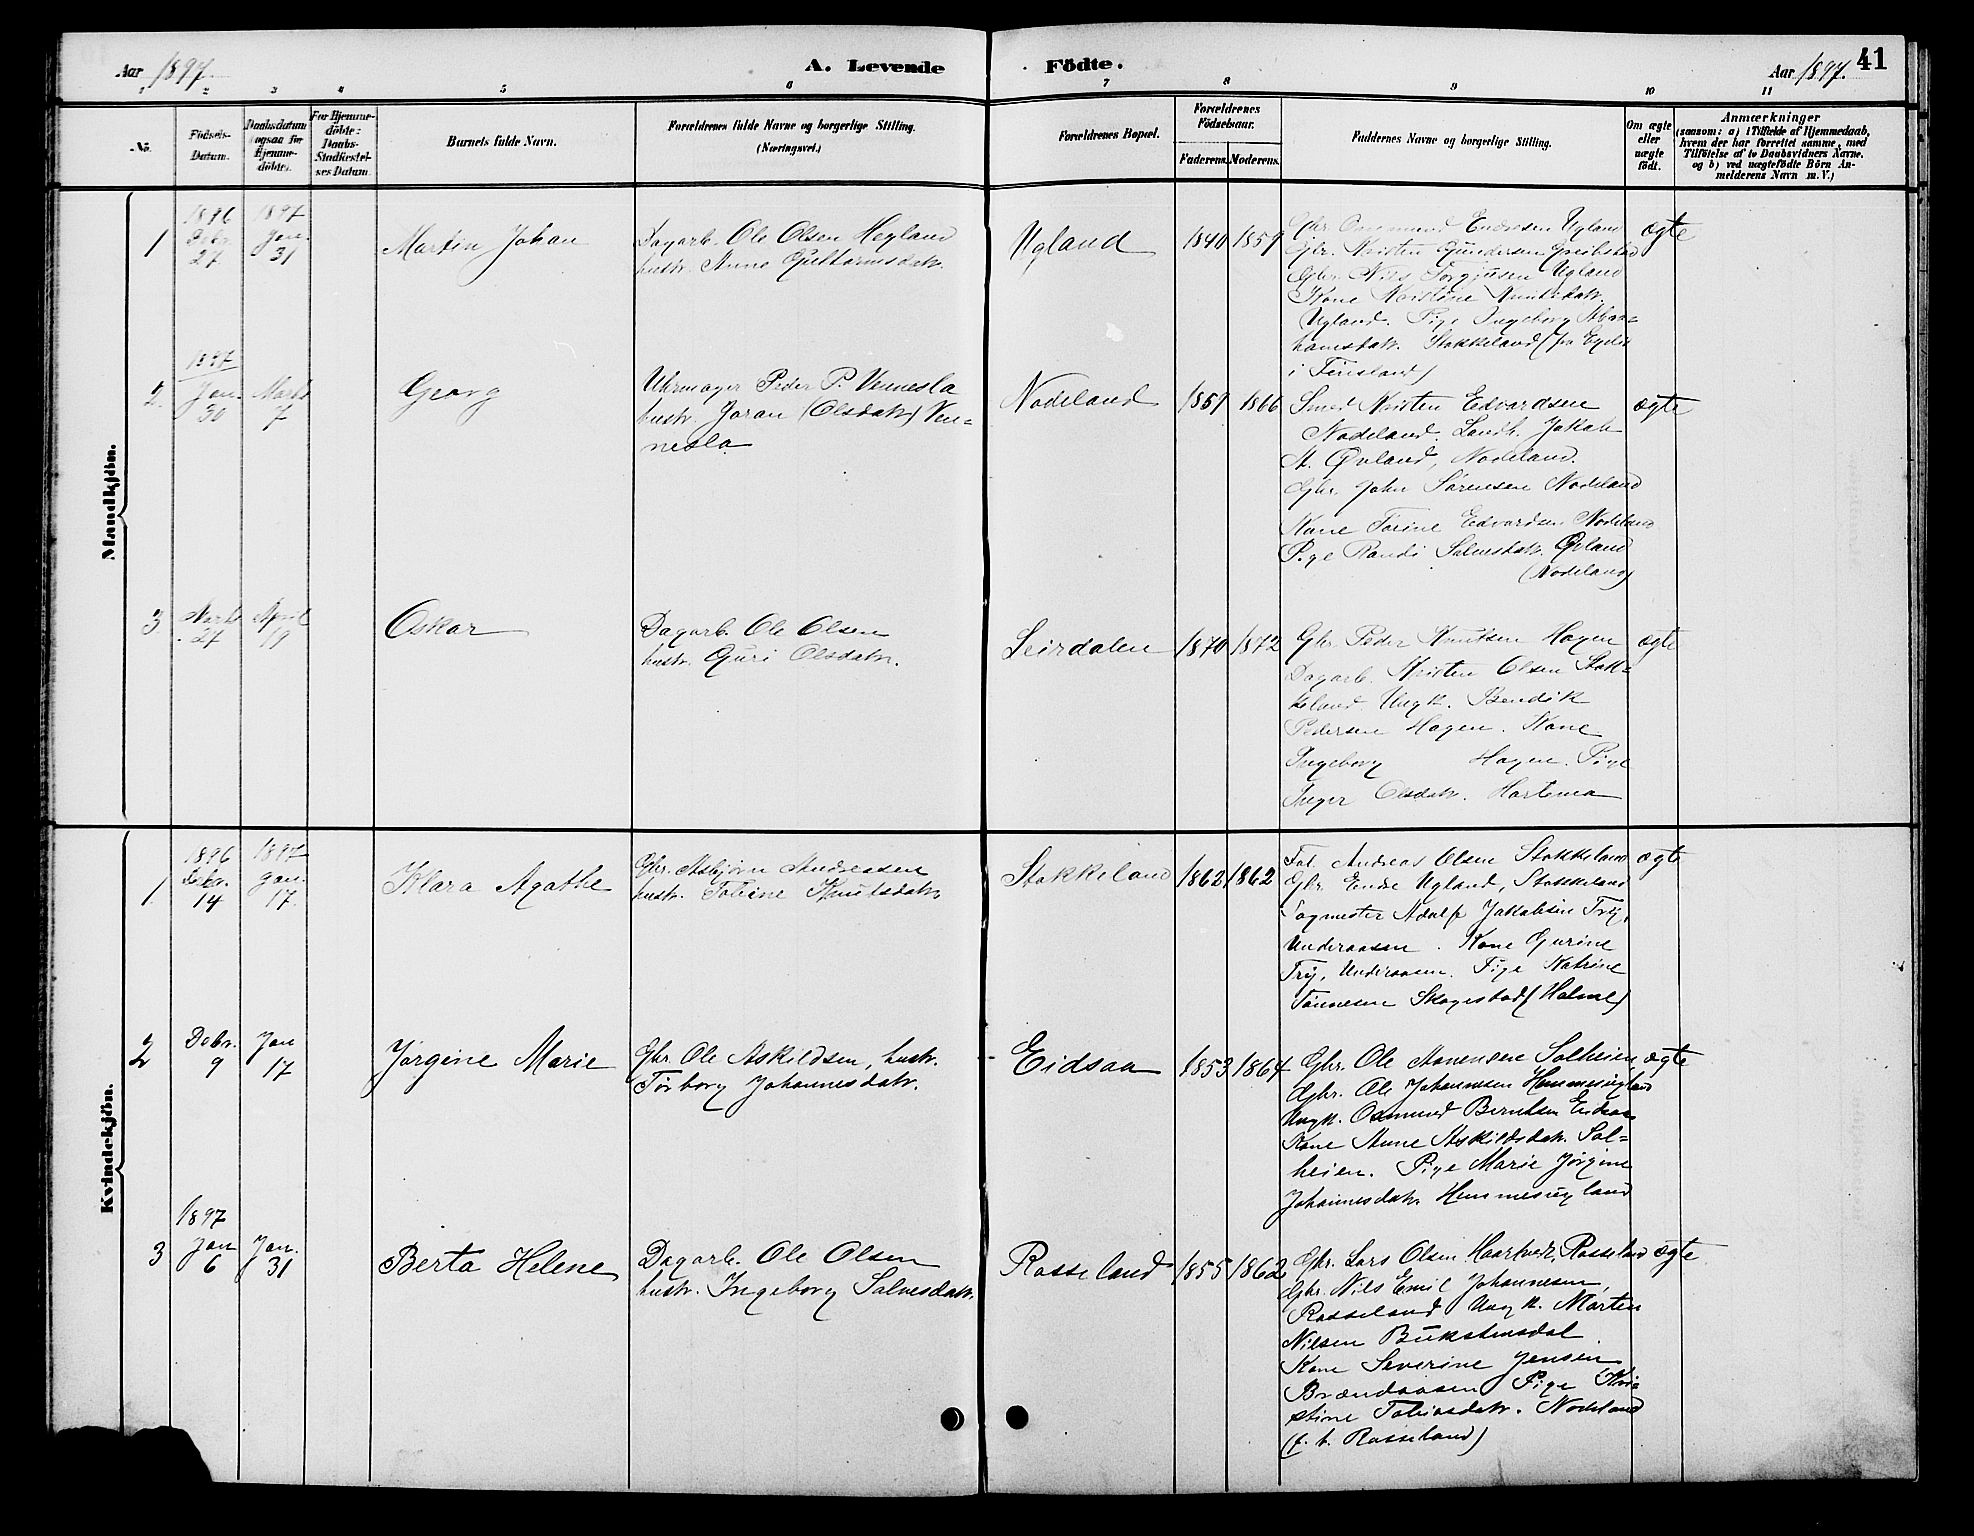 Aar 1897.
A. Levende
Födte.
Aar 1897.
41
1 2 3 4 5 6 7 8 9 10 11
No.
Födsels-
Datum.
Daabsdatum
ogsaa for
Hjemme-
döbte.
For Hjemme-
döbte:
Daabs-
Stadfæstel-
ses Datum.
Barnets fulde Navn.
Forældrenes fulde Navne og borgerlige Stilling.
(Næringsvei.)
Forældrenes Bopæl.
Forældrenes
Födselsaar.
Faderens. Moderens.
Faddernes Navne og borgerlige Stilling.
Om ægte
eller
uægte
födt.
Anmærkninger
(saasom: a) i Tilfælde af Hjemmedaab,
hvem der har forrettet samme, med
Tilföielse af to Daabsvidners Navne,
og b) ved uægtefödte Börn An-
melderens Navn m. V.)
Mandkjön.
1
1896
Debr.
27
1897
Jan.
31
Martin Johan
Dagarb. Ole Olsen Hegland
hustr. Anne Guttormsdatr.
Ugland
1840 1859
Gbr. Omsmund Endresen Ugland
Gbr. Kristen Gundersen Greibstad
Gbr. Nils Torgjusen Ugland
Kone Kristine Knutsdatr.
Ugland. Pige Ingeborg Abra=
hamsdatr. Stokkeland (fra
i Finsland)
ægte
2.
1897
Jan.
30
Marts
7
Georg
Uhrmager Peder P. Vennesla
hustr. Joran (Olsdatr) Ven=
nesla
Nodeland
1857 1866
Smed Kristen Edvardsen
Nodeland. Landh. Jakob
A. Øvland, Nodeland.
Gbr. John Sørensen Nodeland
Kone Torine Edvardsen Nodeland
Pige Randi Salvesdatr. Øvland
(Nodeland)
ægte
3
Marts
27
April
19
Oskar
Dagarb. Ole Olsen
hustr. Guri Olsdatr.
Leirdalen
1870 1872
Gbr. Peder Knutsen Hagen
Dagarb. Kristen Olsen Stok=
keland Ungk. Bendik
Pedersen Hagen. Kone
Ingeborg Hagen. Pige
Inger Olsdatr. Hortema
ægte
Kvindekjön.
1
1896
Debr.
14
1897
Jan.
17.
Klara Agathe
Gbr. Asbjørn Andreasen
hustr. Tobine Knutsdatr
Stokkeland
1862 1862
Fol. Andreas Olsen Stokkeland
Gbr Endre Ugland, Stokkeland
Sagmester Adolf Jakobsen Try,
Underaasen. Kone Gurine
Try, Underaasen. Pige Katrine
Tønnesen Skogestad (Holme)
ægte
2
Debr.
9
Jan
17
Jørgine Marie
Gbr. Ole Askildsen, hustr.
Torborg Johannesdatr.
Eidsaa
1853 1864
Gbr. Ole Aanensen Solheien,
Gbr. Ole Johannesen Hemmesugland
Ungk. Osmund Berntsen Eidsaa
Kone Anne Askildsdatr. Sol=
heien. Pige Marie Jørgine
Johannesdatr. Hemmesugland
ægte
3
1897
Jan
6
Jan.
31
Berta Helene
Dagarb. Ole Olsen
hustr. Ingeborg Salvesdatr.
Rosseland
1855 1862
Gbr. Lars Olsen Haartveit, Rosseland
Gbr. Nils Emil Johannesen
Rosseland Ungk. Morten
Nilsen Bukstensdal.
Kone Severine Jensen
Brændaasen Pige Kri
stine Tobiasdatr. Nodeland
(f. t. Rosseland)
ægte